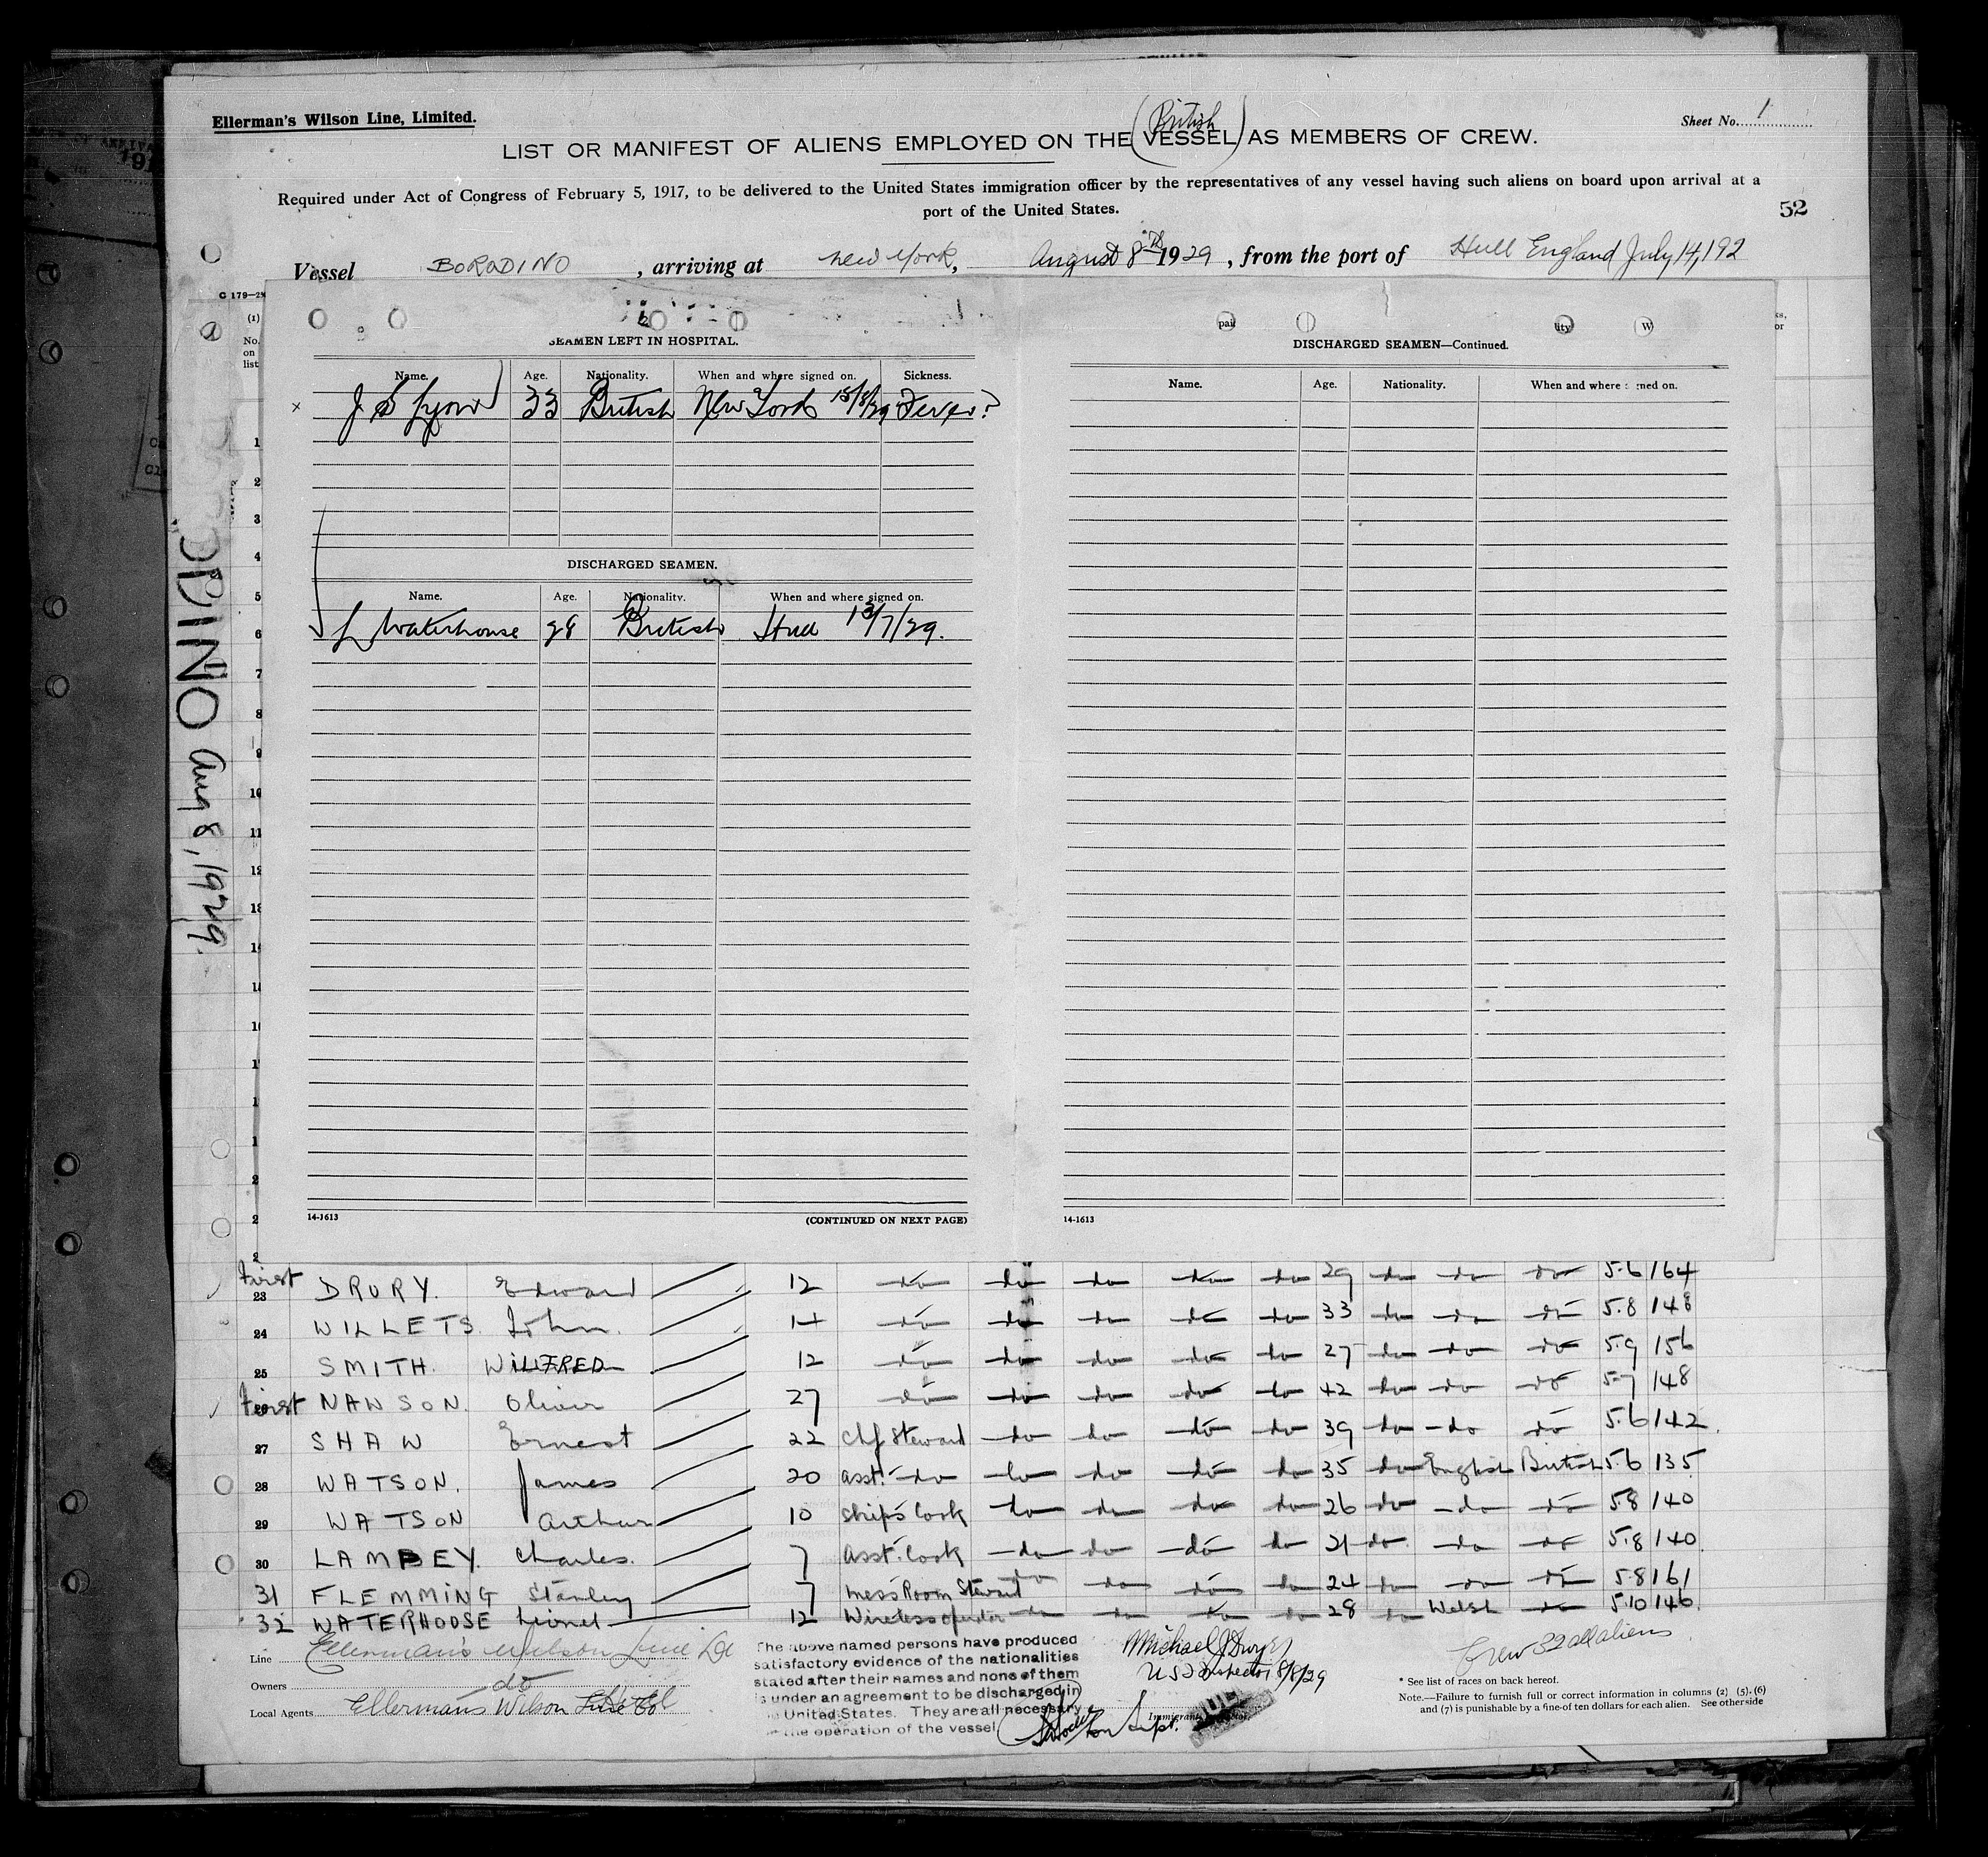 Ellerman's Wilson Line, Limited.
Sheet No. 1
(British)
LIST OR MANIFEST OF ALIENS EMPLOYED ON THE VESSEL AS MEMBERS OF CREW.
Required under Act of Congress of February 5, 1917, to be delivered to the United States immigration officer by the representatives of any vessel having such aliens on board upon arrival at a
port of the United States.
52
Vessel BORODINO, arriving at New York, August 8th 1929, from the port of Hull England July 14, 192
(1)
No.
on
list
SEAMEN LEFT IN HOSPITAL.
Name. Age. Nationality. When and where signed on. Sickness.
x J S Lyon 33 British New York 15/8/29 Fever?
DISCHARGED SEAMEN.
Name. Age. Nationality. When and where signed on.
L Waterhouse 28 British Hull 13/7/29.
14-1613 (CONTINUED ON NEXT PAGE)
DISCHARGED SEAMEN—Continued.
Name. Age. Nationality. When and where signed on.
14-1613
1
2
3
4
5
6
7
8
9
10
11
12
ODINO Aug 8, 1929.
First 23 DRURY. Edward 12 do do do do do 29 do do do 5.6 164
24 WILLETS. John. 14 do do do do do 33 do do do 5.8 148
25 SMITH. WILFRED 12 do do do do do 27 do do do 5.9 156
First NAWSON. Oliver 27 do do do do do 42 do do do 5-7 148
27 SHAW Ernest 22 Chf Steward do do do do 39 do do do 5.6 142.
28 WATSON. James 20 asst. do do do do do 35 do English British 5.6 135
29 WATSON Arthur 10 Ships Cook do do do do 26 do do do 5.8 140
30 LAMBEY. Charles. 7 Asst. Cook do do do do 21 do do do 5.8 140
31 FLEMMING Stanley 7 Mess Room Steward do do do do 24 do do do 5.8 161
32 WATERHOUSE Lionel 12 Wireless operator do do do do 28 do Welsh do 5.10 146.
Line Ellerman's Wilson Line Ld
Owners do
Local Agents Ellermans Wilson Line
The above named persons have produced
satisfactory evidence of the nationalities
stated after their names and none of them
is under an agreement to be discharged in
United States. They are all necessary
the operation of the vessel
Michael J Dwyer
U S Inspector 8/8/29
Immigrant
Crew 32 all aliens
* See list of races on back hereof.
Note.—Failure to furnish full or correct information in columns (2) (5) (6)
and (7) is punishable by a fine of ten dollars for each alien. See otherside